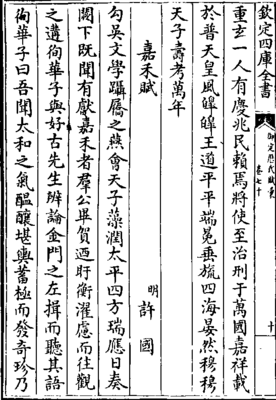 欽定四庫全書
御定歷代賦彙
卷七十
十
重玄一人有慶兆民賴焉將使至治刑于萬國嘉祥載
於普天皇風皥皥王道平平端冕垂旒四海晏然穆穆
天子壽考萬年
嘉禾賦
明 許國
勾吳文學躡屩之燕會天子藻潤太平四方瑞應日奏
闕下既聞有獻嘉禾者羣公畢賀迺盱衡濯慮而往觀
之遘侚華子與好古先生辨論金門之左揖而聽其語
侚華子曰吾聞太和之氣醖釀堪輿蓄極而發奇珍乃